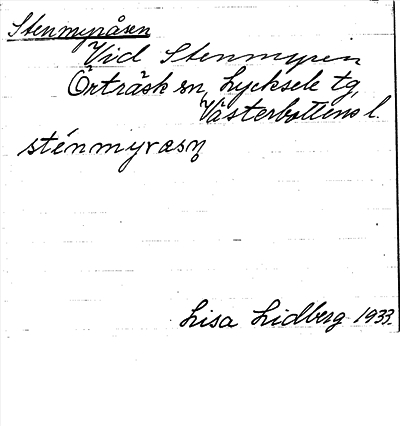 Stenmyråsen
Vid Stenmyren
Örträsk sn, Lycksele tg,
Västerbottens l.
sténmyrăsn̥
Lisa Lidberg 1933.